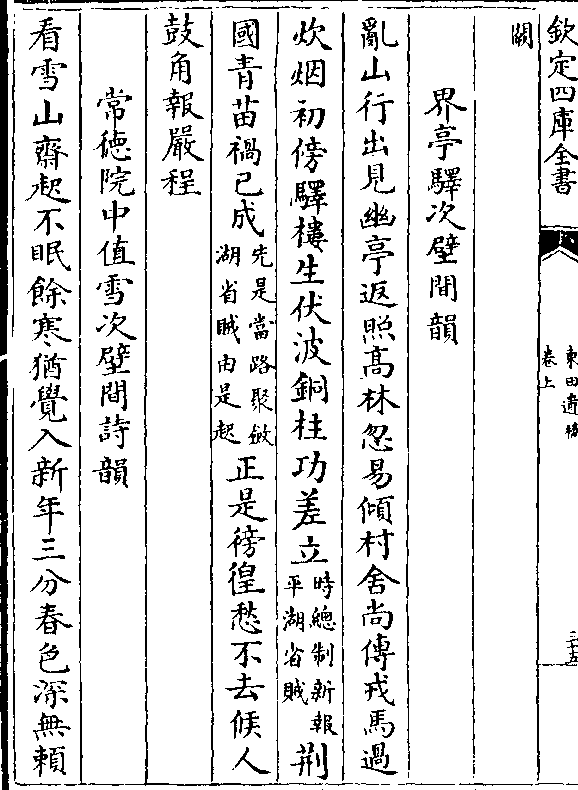 欽定四庫全書
東田遺稿
卷上
三十五
闕
界亭驛次壁間韻
亂山行出見幽亭返照高林忽易傾村舍尚傳戎馬過
炊烟初傍驛樓生伏波銅柱功差立時總制新報平湖省賊荆
國青苗禍已成先是當路聚斂湖省賊由是起正是徬徨愁不去候人
鼓角報嚴程
常徳院中值雪次壁間詩韻
看雪山齋起不眠餘寒猶覺入新年三分春色深無頼